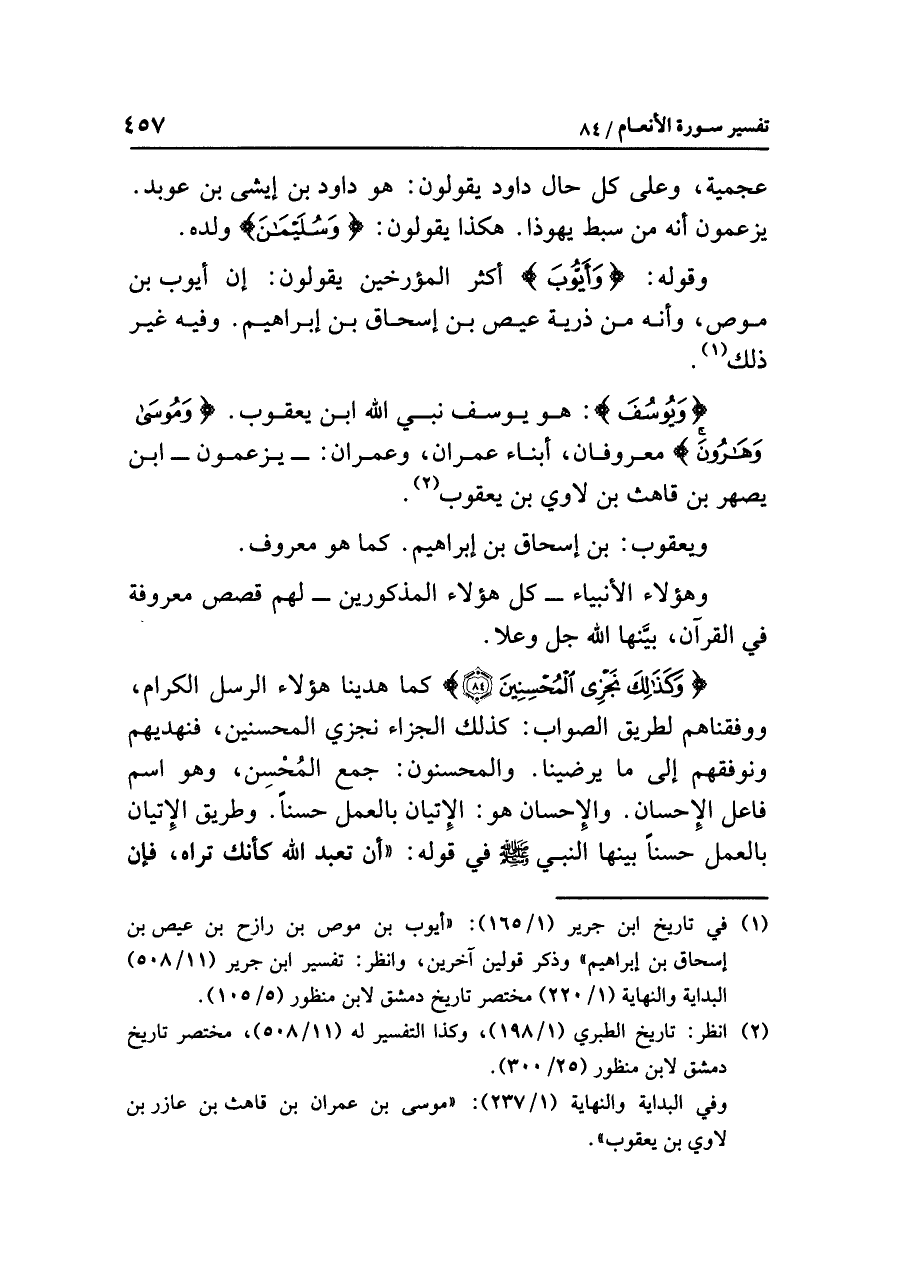 تفسير سورة الأنعام / ٨٤ ٤٥٧
عجمية، وعلى كل حال داود يقولون: هو داود بن إيشى بن عوبد.
يزعمون أنه من سبط يهوذا. هكذا يقولون: ﴿ وَسُلَيْمَٰنَ﴾ ولده.
وقوله: ﴿ وَأَيُّوبَ ﴾ أكثر المؤرخين يقولون: إن أيوب بن
موص، وأنه من ذرية عيص بن إسحاق بن إبراهيم. وفيه غير
ذلك(١).
﴿ وَيُوسُفَ ﴾: هو يوسف نبي الله ابن يعقوب. ﴿ وَمُوسَىٰ
وَهَٰرُونَۚ ﴾ معروفان، أبناء عمران، وعمران: ــ يزعمون ــ ابن
يصهر بن قاهث بن لاوي بن يعقوب(٢).
ويعقوب: بن إسحاق بن إبراهيم. كما هو معروف.
وهؤلاء الأنبياء ــ كل هؤلاء المذكورين ــ لهم قصص معروفة
في القرآن، بيَّنها الله جل وعلا.
﴿ وَكَذَٰلِكَ نَجْزِى ٱلْمُحْسِنِينَ ٨٤﴾ كما هدينا هؤلاء الرسل الكرام،
ووفقناهم لطريق الصواب: كذلك الجزاء نجزي المحسنين، فنهديهم
ونوفقهم إلى ما يرضينا. والمحسنون: جمع المُحْسِن، وهو اسم
فاعل الإحسان. والإحسان هو: الإتيان بالعمل حسناً. وطريق الإتيان
بالعمل حسناً بينها النبي ﷺ في قوله: «أن تعبد الله كأنك تراه، فإن
(١) في تاريخ ابن جرير (١/ ١٦٥): «أيوب بن موص بن رازح بن عيص بن
إسحاق بن إبراهيم» وذكر قولين آخرين، وانظر: تفسير ابن جرير (١١/ ٥٠٨)
البداية والنهاية (١/ ٢٢٠) مختصر تاريخ دمشق لابن منظور (٥/ ١٠٥).
(٢) انظر: تاريخ الطبري (١/ ١٩٨)، وكذا التفسير له (١١/ ٥٠٨)، مختصر تاريخ
دمشق لابن منظور (٢٥/ ٣٠٠).
وفي البداية والنهاية (١/ ٢٣٧): «موسى بن عمران بن قاهث بن عازر بن
لاوي بن يعقوب».